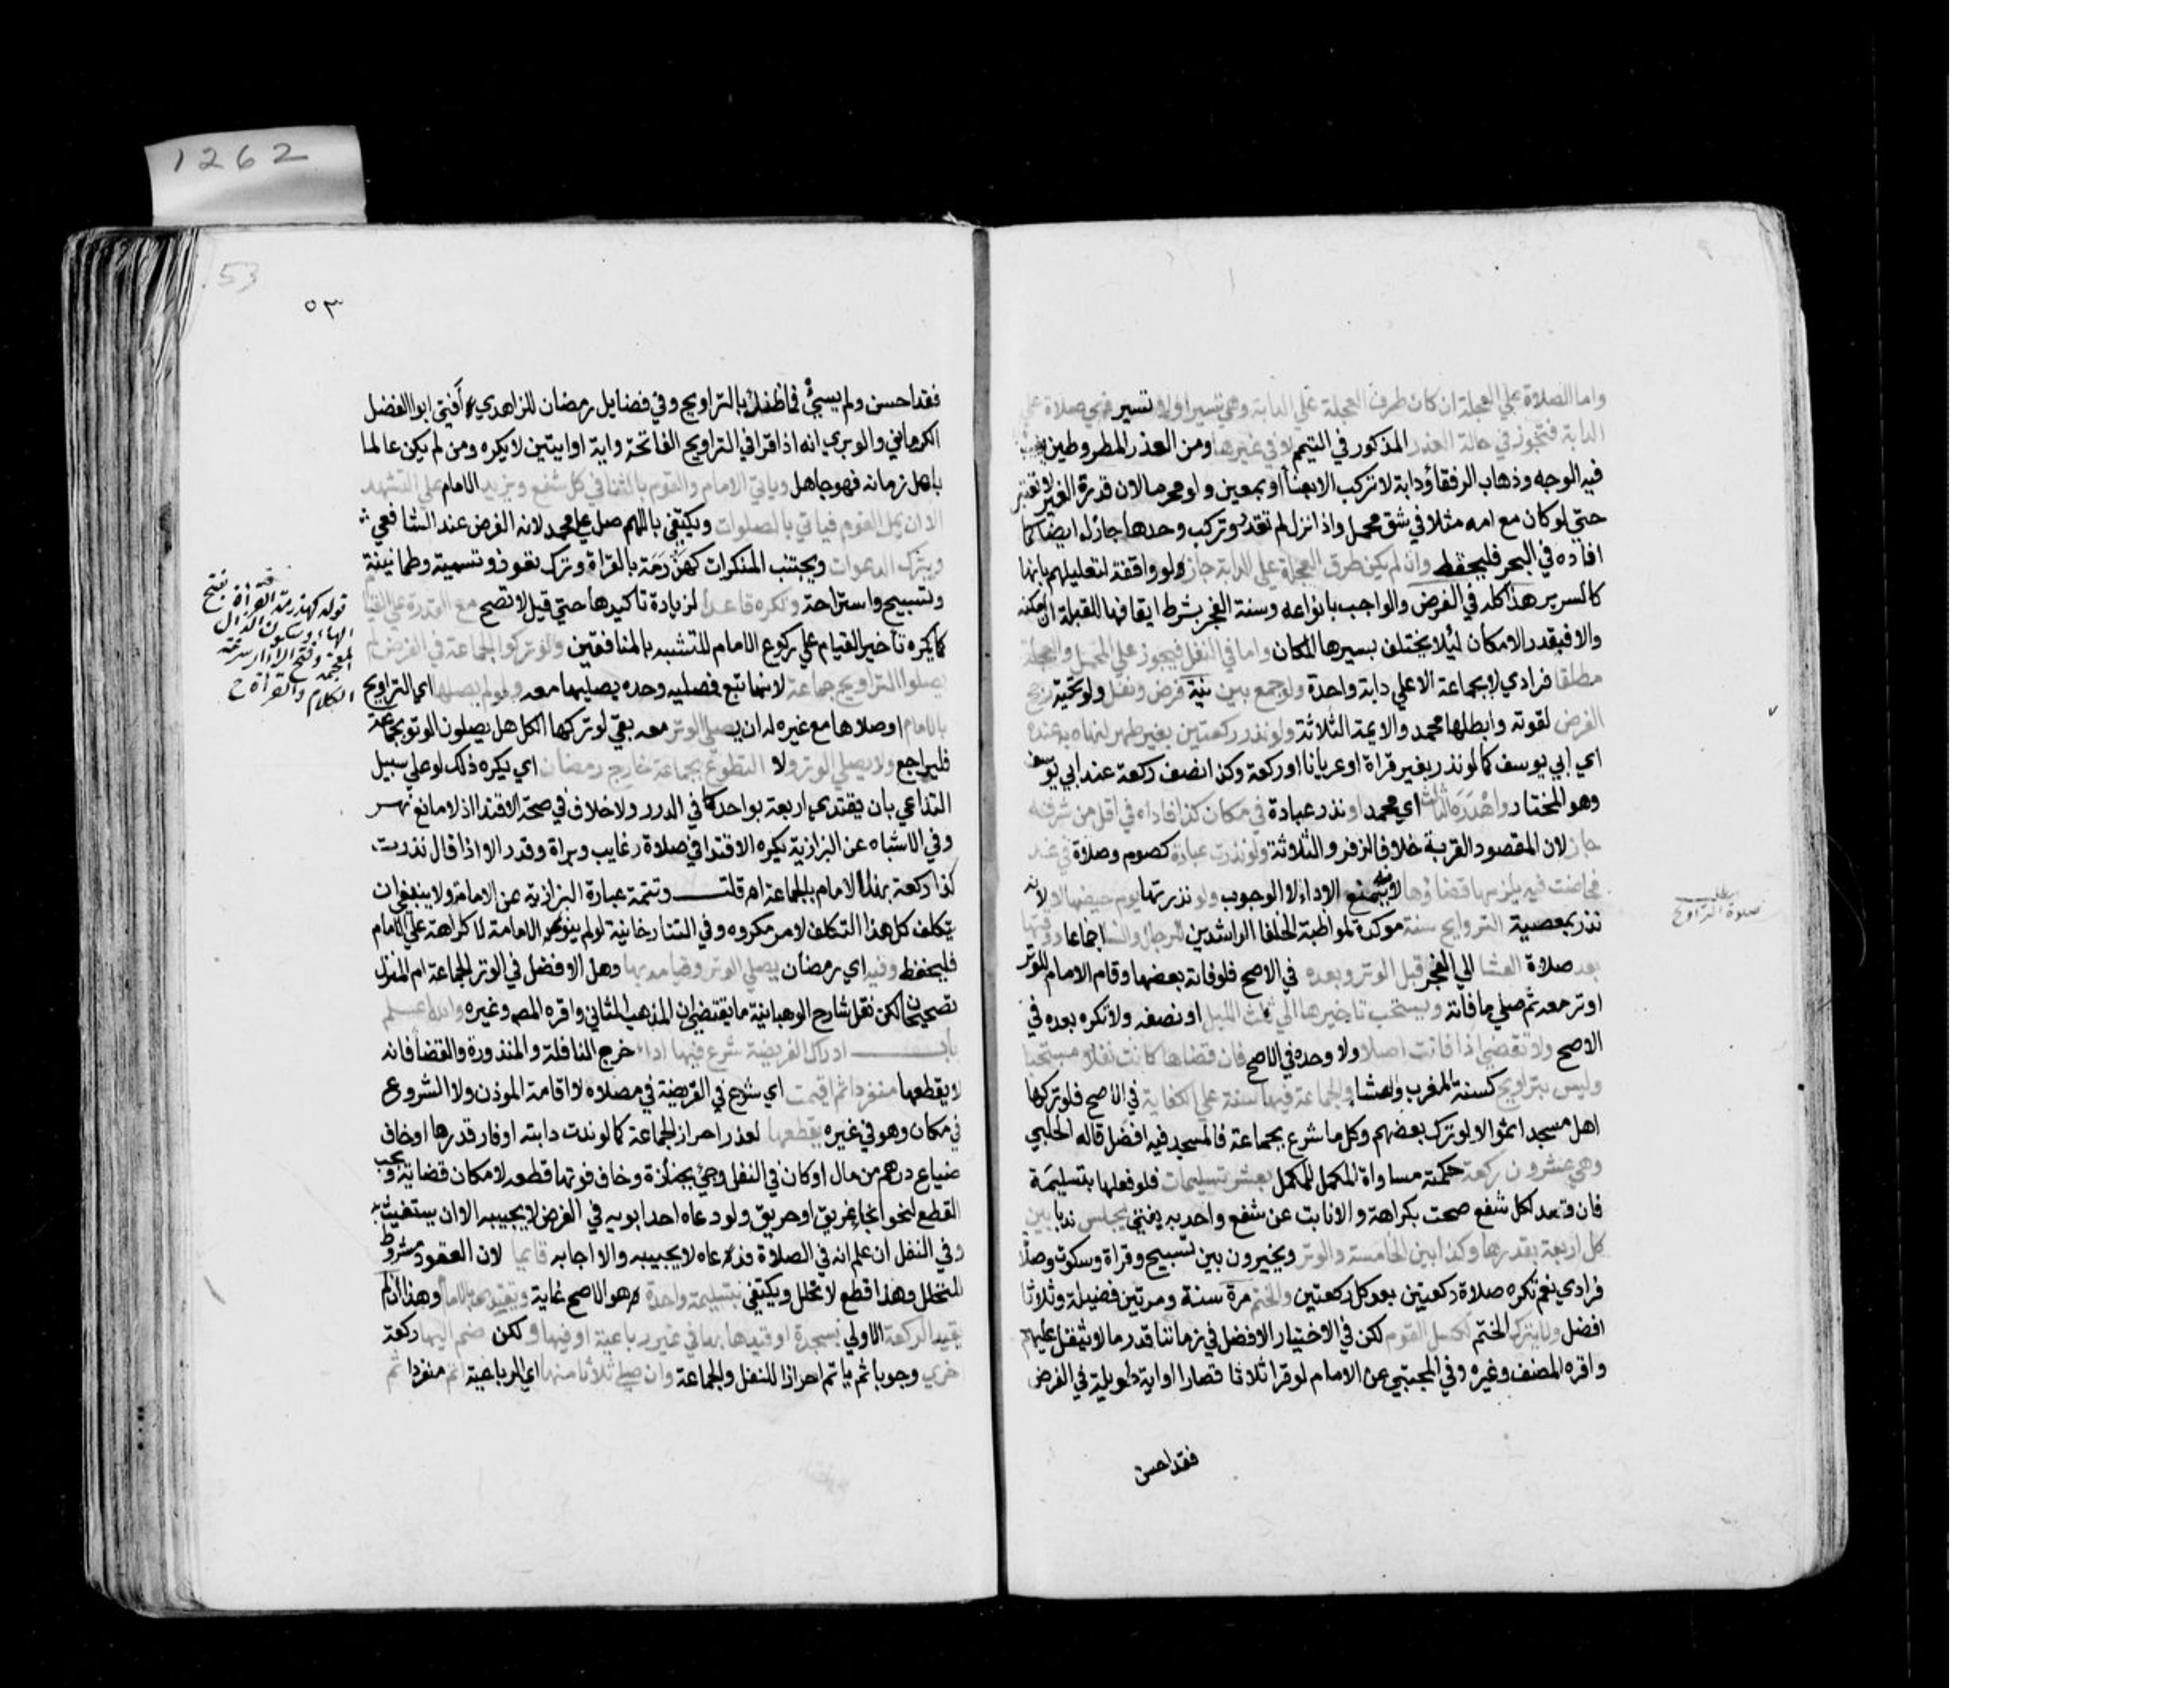 واما الصلاة علي العجلة ان كان طرف العجلة علي الدابة وهي تسير او لا تسير فهي صلاة علي
الدابة فتجوز في حالة العذر المذكور في التيمم لا في غيرها ومن العذر المطر وطين يغيب
فيه الوجه وذهاب الرفقاء ودابة لا تركب الا بعناء او بمعين ولو محرما لان قدرة الغير لا تعتبر
حتي لو كان مع امه مثلا في شق محمل واذا نزل لم تقدر تركب وحدها جاز له ايضا كما
افاده في البحر فليحفظ وان لم يكن طرف العجلة علي الدابة جاز لو واقفة لتعليلهم بانها
كالسرير هذا كله في الفرض والواجب بانواعه وسنة الفجر بشرط ايقافها للقبلة ان امكنه
والا فبقدر الامكان لئلا يختلف بسيرها المكان واما في النفل فيجوز علي المحمل والعجلة
مطلقا فرادي لا بجماعة الا علي دابة واحدة ولو جمع بين نية فرض ونفل ولو تحية رجح
الفرض لقوته وابطلها محمد والايمة الثلاثة ولو نذر ركعتين بغير طهر لزماه به عنده
اي ابي يوسف كما لو نذر بغير قراة او عريانا او ركعة وكذا نصف ركعة عند ابي يوسف
وهو المختار واهدره الثالث اي محمد او نذر عبادة في مكان كذا فاداه في اقل من شرفه
جاز لان المقصود القربة خلافا لزفر والثلاثة ولو نذرت عبادة كصوم وصلاة في غد
فحاضت فيه يلزمها قضاؤها لانه يمنع الاداء لا الوجوب ولو نذرتها يوم حيضها لا لانه
نذر بمعصية التراويح سنة موكدة لمواظبة الخلفا الراشدين للرجال والنسا اجماعا ووقتها
بعد صلاة العشا الي الفجر قبل الوتر وبعده في الاصح فلو فاته بعضها وقام الامام للوتر
اوتر معه ثم صلي ما فاته ويستحب تاخيرها الي ثلث الليل او نصفه ولا تكره بعده في
الاصح ولا تقضي اذا فاتت اصلا ولا وحده في الاصح فان قضاها كانت نفلا مستحبا
وليس بتراويح كسنة المغرب والعشا والجماعة فيها سنة علي الكفاية في الاصح فلو تركها
اهل مسجد اثموا لا لو ترك بعضهم وكل ما شرع بجماعة فالمسجد فيه افضل قاله الحلبي
وهي عشرون ركعة حكمته مساواة المكمل للمكمل بعشر تسليمات فلو فعلها بتسليمة
فان قعد لكل شفع صحت بكراهة والا نابت عن شفع واحد به يفتي يجلس ندبا بين
كل اربعة بقدرها وكذا بين الخامسة والوتر ويخيرون بين تسبيح وقراة وسكوت وصلاة
فرادي نعم تكره صلاة ركعتين بعد كل ركعتين والختم مرة سنة ومرتين فضيلة وثلاثا
افضل ولا يترك الختم لكسل القوم لكن في الاختيار الافضل في زماننا قدر ما لا يثقل عليهم
واقره المصنف وغيره وفي المجتبي عن الامام لو قرا ثلاثا قصارا او اية طويلة في الفرض
فقد احسن
صلاة التراويح
1262
53
٥٣
فقد احسن ولم يسئ فما ظنك بالتراويح وفي فضايل رمضان للزاهدي افتي ابو الفضل
الكرماني والوبري انه اذا قرا في التراويح الفاتحة واية او ايتين لا يكره ومن لم يكن عالما
باهل زمانه فهو جاهل وياتي الامام والقوم بالثنا في كل شفع ويزيد الامام علي التشهد
الا ان يمل القوم فياتي بالصلوات ويكتفي باللهم صل علي محمد لانه الفرض عند الشافعي
ويترك الدعوات ويجتنب المنكرات كهذرمة بالقراة وترك تعوذ وتسمية وطمانينة
وتسبيح واستراحة وتكره قاعدا لزيادة تاكيدها حتي قيل لا تصح مع القدرة علي القيام
كما يكره تاخير القيام علي ركوع الامام للتشبه بالمنافقين ولو تركوا الجماعة في الفرض لم
يصلوا التراويح جماعة لانها تبع فمصليه وحده يصليها معه ولو لم يصلها اي التراويح
بالامام او صلاها مع غيره له ان يصلي الوتر معه بقي لو تركها الكل هل يصلون الوتر بجماعة
فليراجع ولا يصلي الوتر ولا التطوع بجماعة خارج رمضان اي يكره ذلك لو علي سبيل
التداعي بان يقتدي اربعة بواحد كما في الدرر ولا خلاف في صحة الاقتدا اذ لا مانع نهر
وفي الاشباه عن البزازية يكره الاقتدا في صلاة رغايب وبراة وقدر الا اذا قال نذرت
كذا ركعة بهذا الامام بالجماعة اه قلت وتتمة عبارة البزازية عن الامامة ولا ينبغي ان
يتكلف كل هذا التكلف لامر مكروه وفي التتارخانية لو لم ينو الامامة لا كراهة علي الامام
فليحفظ وفيه اي رمضان يصلي الوتر وقيامه بها وهل الافضل في الوتر الجماعة ام المنزل
تصحيحان لكن نقل شارح الوهبانية ما يقتضي ان المذهب الثاني واقره المص وغيره والله اعلم
باب ادراك الفريضة شرع فيها اداء خرج النافلة والمنذورة والقضا فانه
لا يقطعها منفردا ثم اقيمت اي شرع في الفريضة في مصلاه لا اقامة الموذن ولا الشروع
في مكان وهو في غيره يقطعها لعذر احراز الجماعة كما لو ندت دابته او فار قدرها او خاف
ضياع درهم من ماله او كان في النفل وجئ بجنازة وخاف فوتها قطعه لامكان قضايه ويجب
القطع لنحو انجاء غريق او حريق ولو دعاه احد ابويه في الفرض لا يجيبه الا ان يستغيث به
وفي النفل ان علم انه في الصلاة فدعاه لا يجيبه والا اجابه قايما لان القعود مشروط
للتحلل وهذا قطع لا تحلل ويكتفي بتسليمة واحدة هو الاصح غاية ويقتدي بالامام وهذا ان لم
يقيد الركعة الاولي بسجدة او قيدها بها في غير رباعية او فيها ولكن ضم اليها ركعة
اخري وجوبا ثم ياتم احرازا للنفل والجماعة وان صلي ثلاثا منها اي الرباعية اتم منفردا ثم
قوله كهذرمة القراة بفتح
الهاء وسكون الذال
المعجمة وفتح الراء سرعة
الكلام والقراة ح